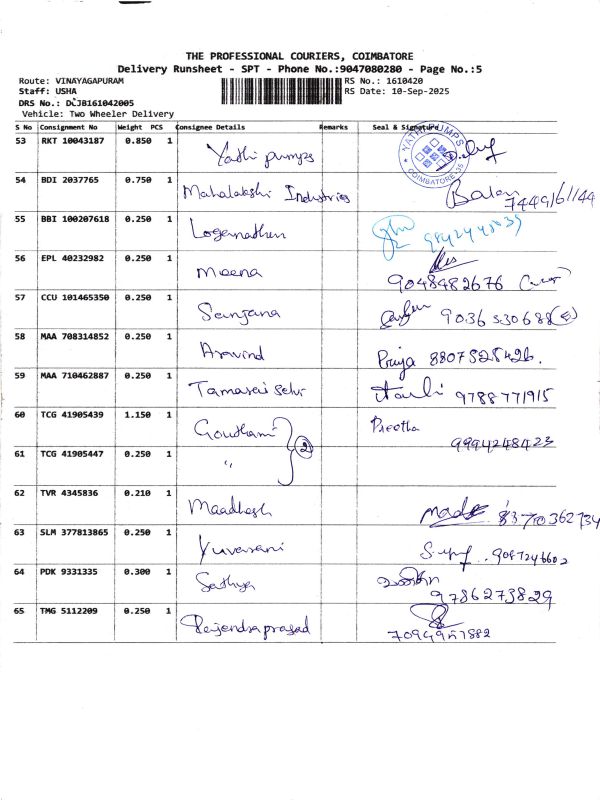 THE PROFESSIONAL COURIERS, COIMBATORE
Delivery Runsheet - SPT - Phone No.:9047080280 - Page No.:5
Route: VINAYAGAPURAM RS No.: 1610420
Staff: USHA RS Date: 10-Sep-2025
DRS No.: DCJB161042005
Vehicle: Two Wheeler Delivery
S No Consignment No Weight PCS Consignee Details Remarks Seal & Signature
53 RKT 10043187 0.850 1 Yathi pumps
YATHI PUMPS COIMBATORE-35
54 BDI 2037765 0.750 1 Mahalakshi Industries Balan 7449161144
55 BBI 100207618 0.250 1 Logernathen 9942448039
56 EPL 40232982 0.250 1 Meena 9048482676
57 CCU 101465350 0.250 1 Sanjana 9036530688
58 MAA 708314852 0.250 1 Aravind Priya 8807525426.
59 MAA 710462887 0.250 1 Tamarai Selvi 9788771915
60 TCG 41905439 1.150 1 Gouthami 2 Preetha 9994248423
61 TCG 41905447 0.250 1 "
62 TVR 4345836 0.210 1 Maadhesh
63 SLM 377813865 0.250 1 Yuvarani
64 PDK 9331335 0.300 1 Sathya 9786273829
65 TMG 5112209 0.250 1 Rajendra prasad